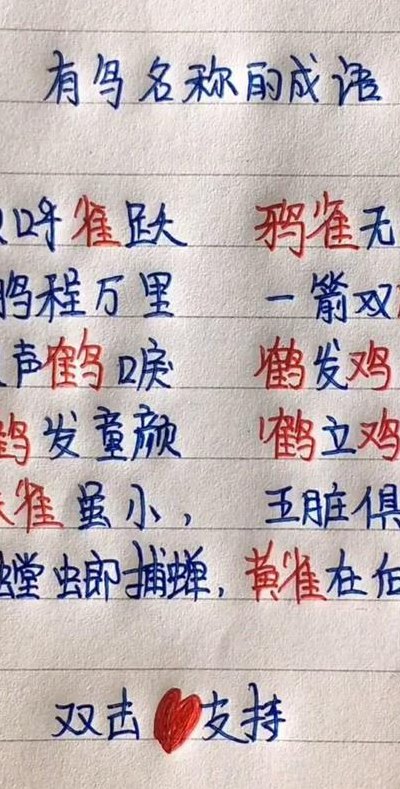 有鸟名称的成语
呼雀跃 鸦雀无
程万里 一箭双
声鹤唳 鹤发鸡
鹤发童颜 鹤立鸡
雀虽小， 五脏俱
螳螂捕蝉，黄雀在后
双击❤支持